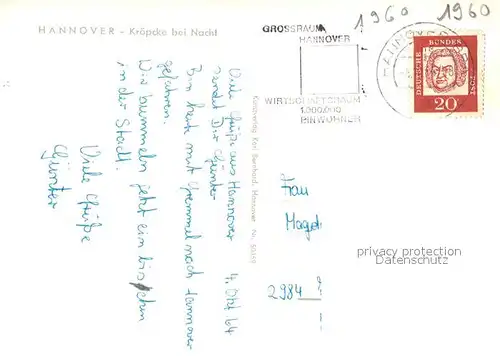 HANNOVER - Kröpcke bei Nacht
1960 1960
GROSSRAUM
HANNOVER
WIRTSCHAFTSRAUM
1.000.000
EINWOHNER
HANNOVER
DEUTSCHE BUNDESPOST
20
4. Okt 64
Viele Grüße aus Hannover
sendet Dir Günter
Bin heute mit nach Hannover
gefahren.
Wir bummeln jetzt ein bischen
in der Stadt.
Viele Grüße
Günter
Kunstverlag Karl Bernhard, Hannover Nr.
Frau
2984
privacy protection
Datenschutz